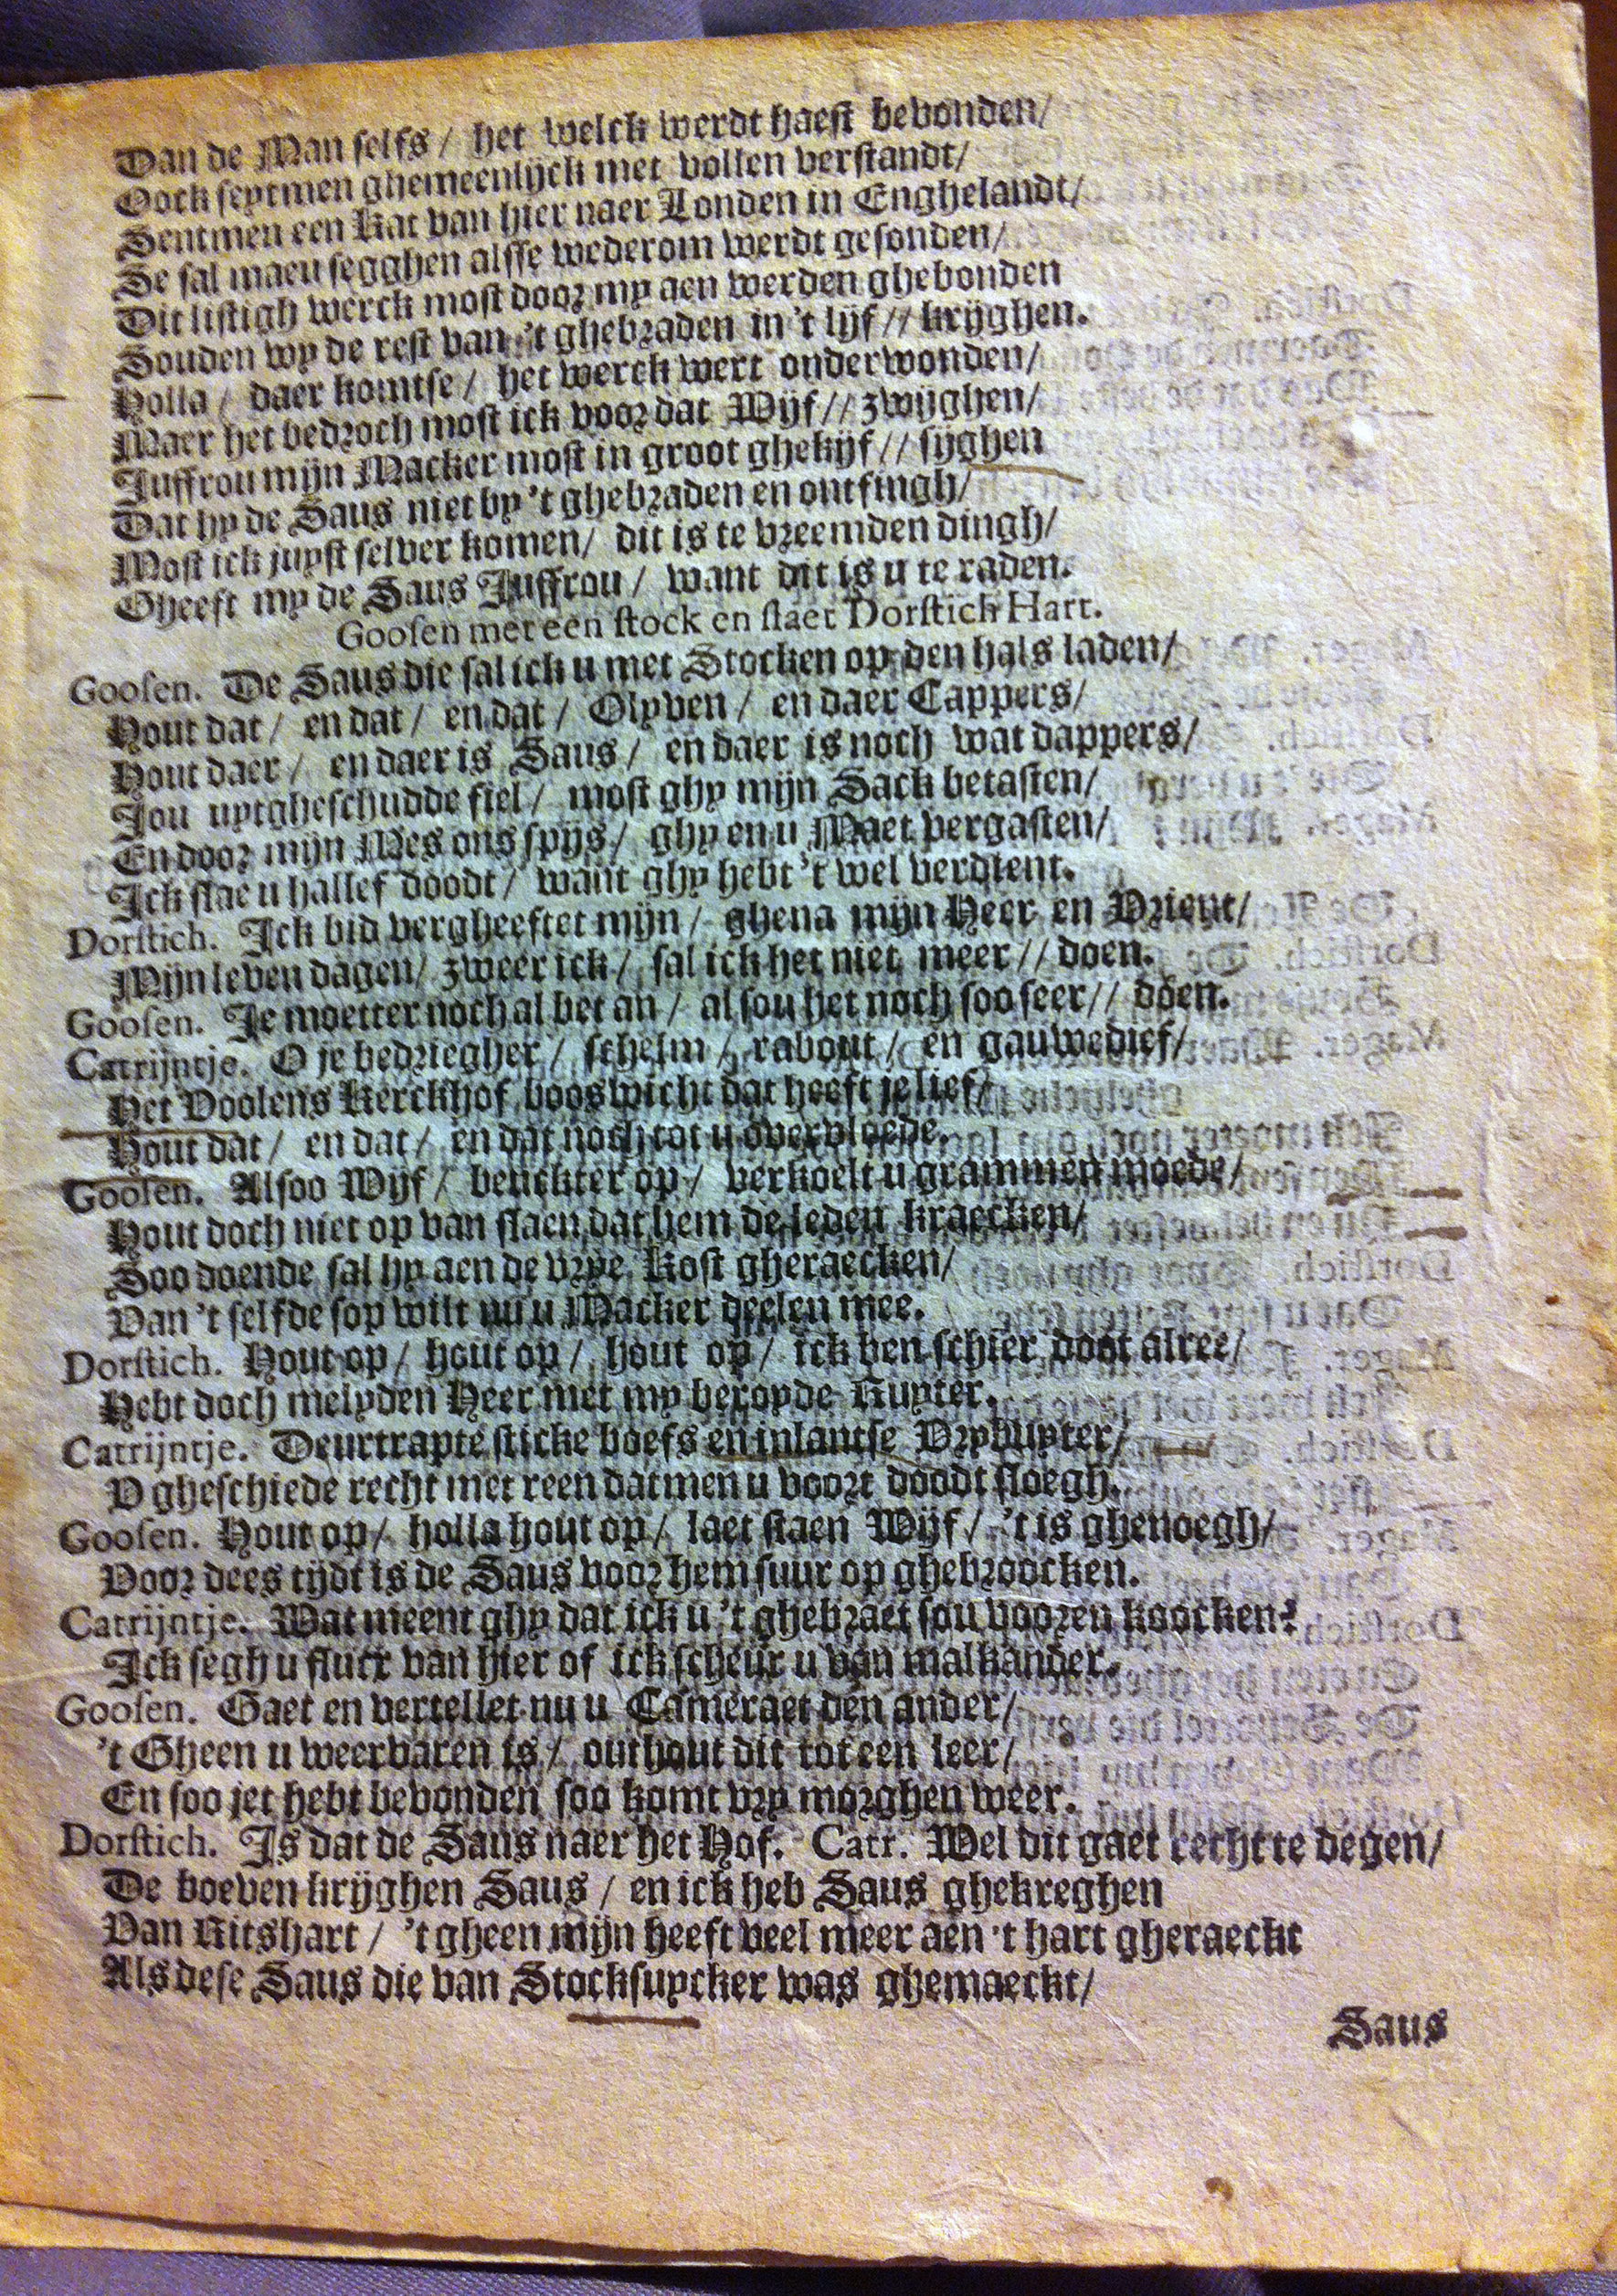 Dan de Man selfs / het welck werdt haest bevonden /
Oock seytmen ghemeenlijck met vollen verstandt /
Sentmen een Kat van hier naer Londen in Enghelandt /
Se sal maeu segghen alsse wederom werdt gesonden /
Dit listigh werck most door my aen werden ghebonden
Souden wy de rest van 't ghebraden in 't lijf // krijghen.
Holla / daer komtse / het werck wert onderwonden /
Maer het bedroch most ick voor dat Wijf // zwijghen /
Juffrou mijn Macker most in groot ghekijf // sijghen
Dat hy de Saus niet by 't ghebraden en ontfingh /
Most ick juyst selver komen / dit is te vreemden dingh /
Gheeft my de Saus Juffrou / want dit is u te raden.
Goosen met een stock en slaet Dorstich Hart.
Goosen. De Saus die sal ick u met Stocken op den hals laden /
Hout dat / en dat / en dat / Olyven / en daer Cappers /
Hout daer / en daer is Saus / en daer is noch wat dappers /
Jou uytgheschudde fiel / most ghy mijn Sack betasten /
En door mijn Mes ons spijs / ghy en u Maet vergasten /
Ick slae u hallef doodt / want ghy hebt 't wel verdient.
Dorstich. Ick bid vergheeftet mijn / ghena mijn Heer en Vrient /
Mijn leven dagen / zweer ick / sal ick het niet meer // doen.
Goosen. Je moetter noch al bet an / al sou het noch soo seer // doen.
Catrijntje. O je bedriegher / schelm / rabout / en gauwedief /
Het Voolens Kerckhof booswicht dat heeft je lief /
Hout dat / en dat / en dat noch tot u overvloede.
Goosen. Alsoo Wijf / betickter op / verkoelt u grammen moede /
Hout doch niet op van slaen dat hem de leden kraecken /
Soo doende sal hy aen de vrye Kost gheraecken /
Van 't selfde sop wilt nu u Macker deelen mee.
Dorstich. Hout op / hout op / hout op / ick ben schier doot alree /
Hebt doch melyden Heer met my beroyde Ruyter.
Catrijntje. Deurtrapte sticke boefs en inlantse Vrybuyter /
V gheschiede recht met reen datmen u voort doodt sloegh.
Goosen. Hout op / holla hout op / laet staen Wijf / 't is ghenoegh /
Voor dees tijdt is de Saus voor hem suur op ghebroocken.
Catrijntje. Wat meent ghy dat ick u 't ghebraet sou vooren koocken?
Ick segh u flucx van hier of ick scheur u van malkander.
Goosen. Gaet en vertellet nu u Cameraet den ander /
't Gheen u weervaren is / onthout dit tot een leer /
En soo jet hebt bevonden soo komt vry morghen weer.
Dorstich. Is dat de Saus naer het Hof. Catr. Wel dit gaet recht te degen /
De boeven krijghen Saus / en ick heb Saus ghekreghen
Van Ritshart / 't gheen mijn heeft veel meer aen 't hart gheraeckt
Als dese Saus die van Stocksuycker was ghemaeckt /
Saus